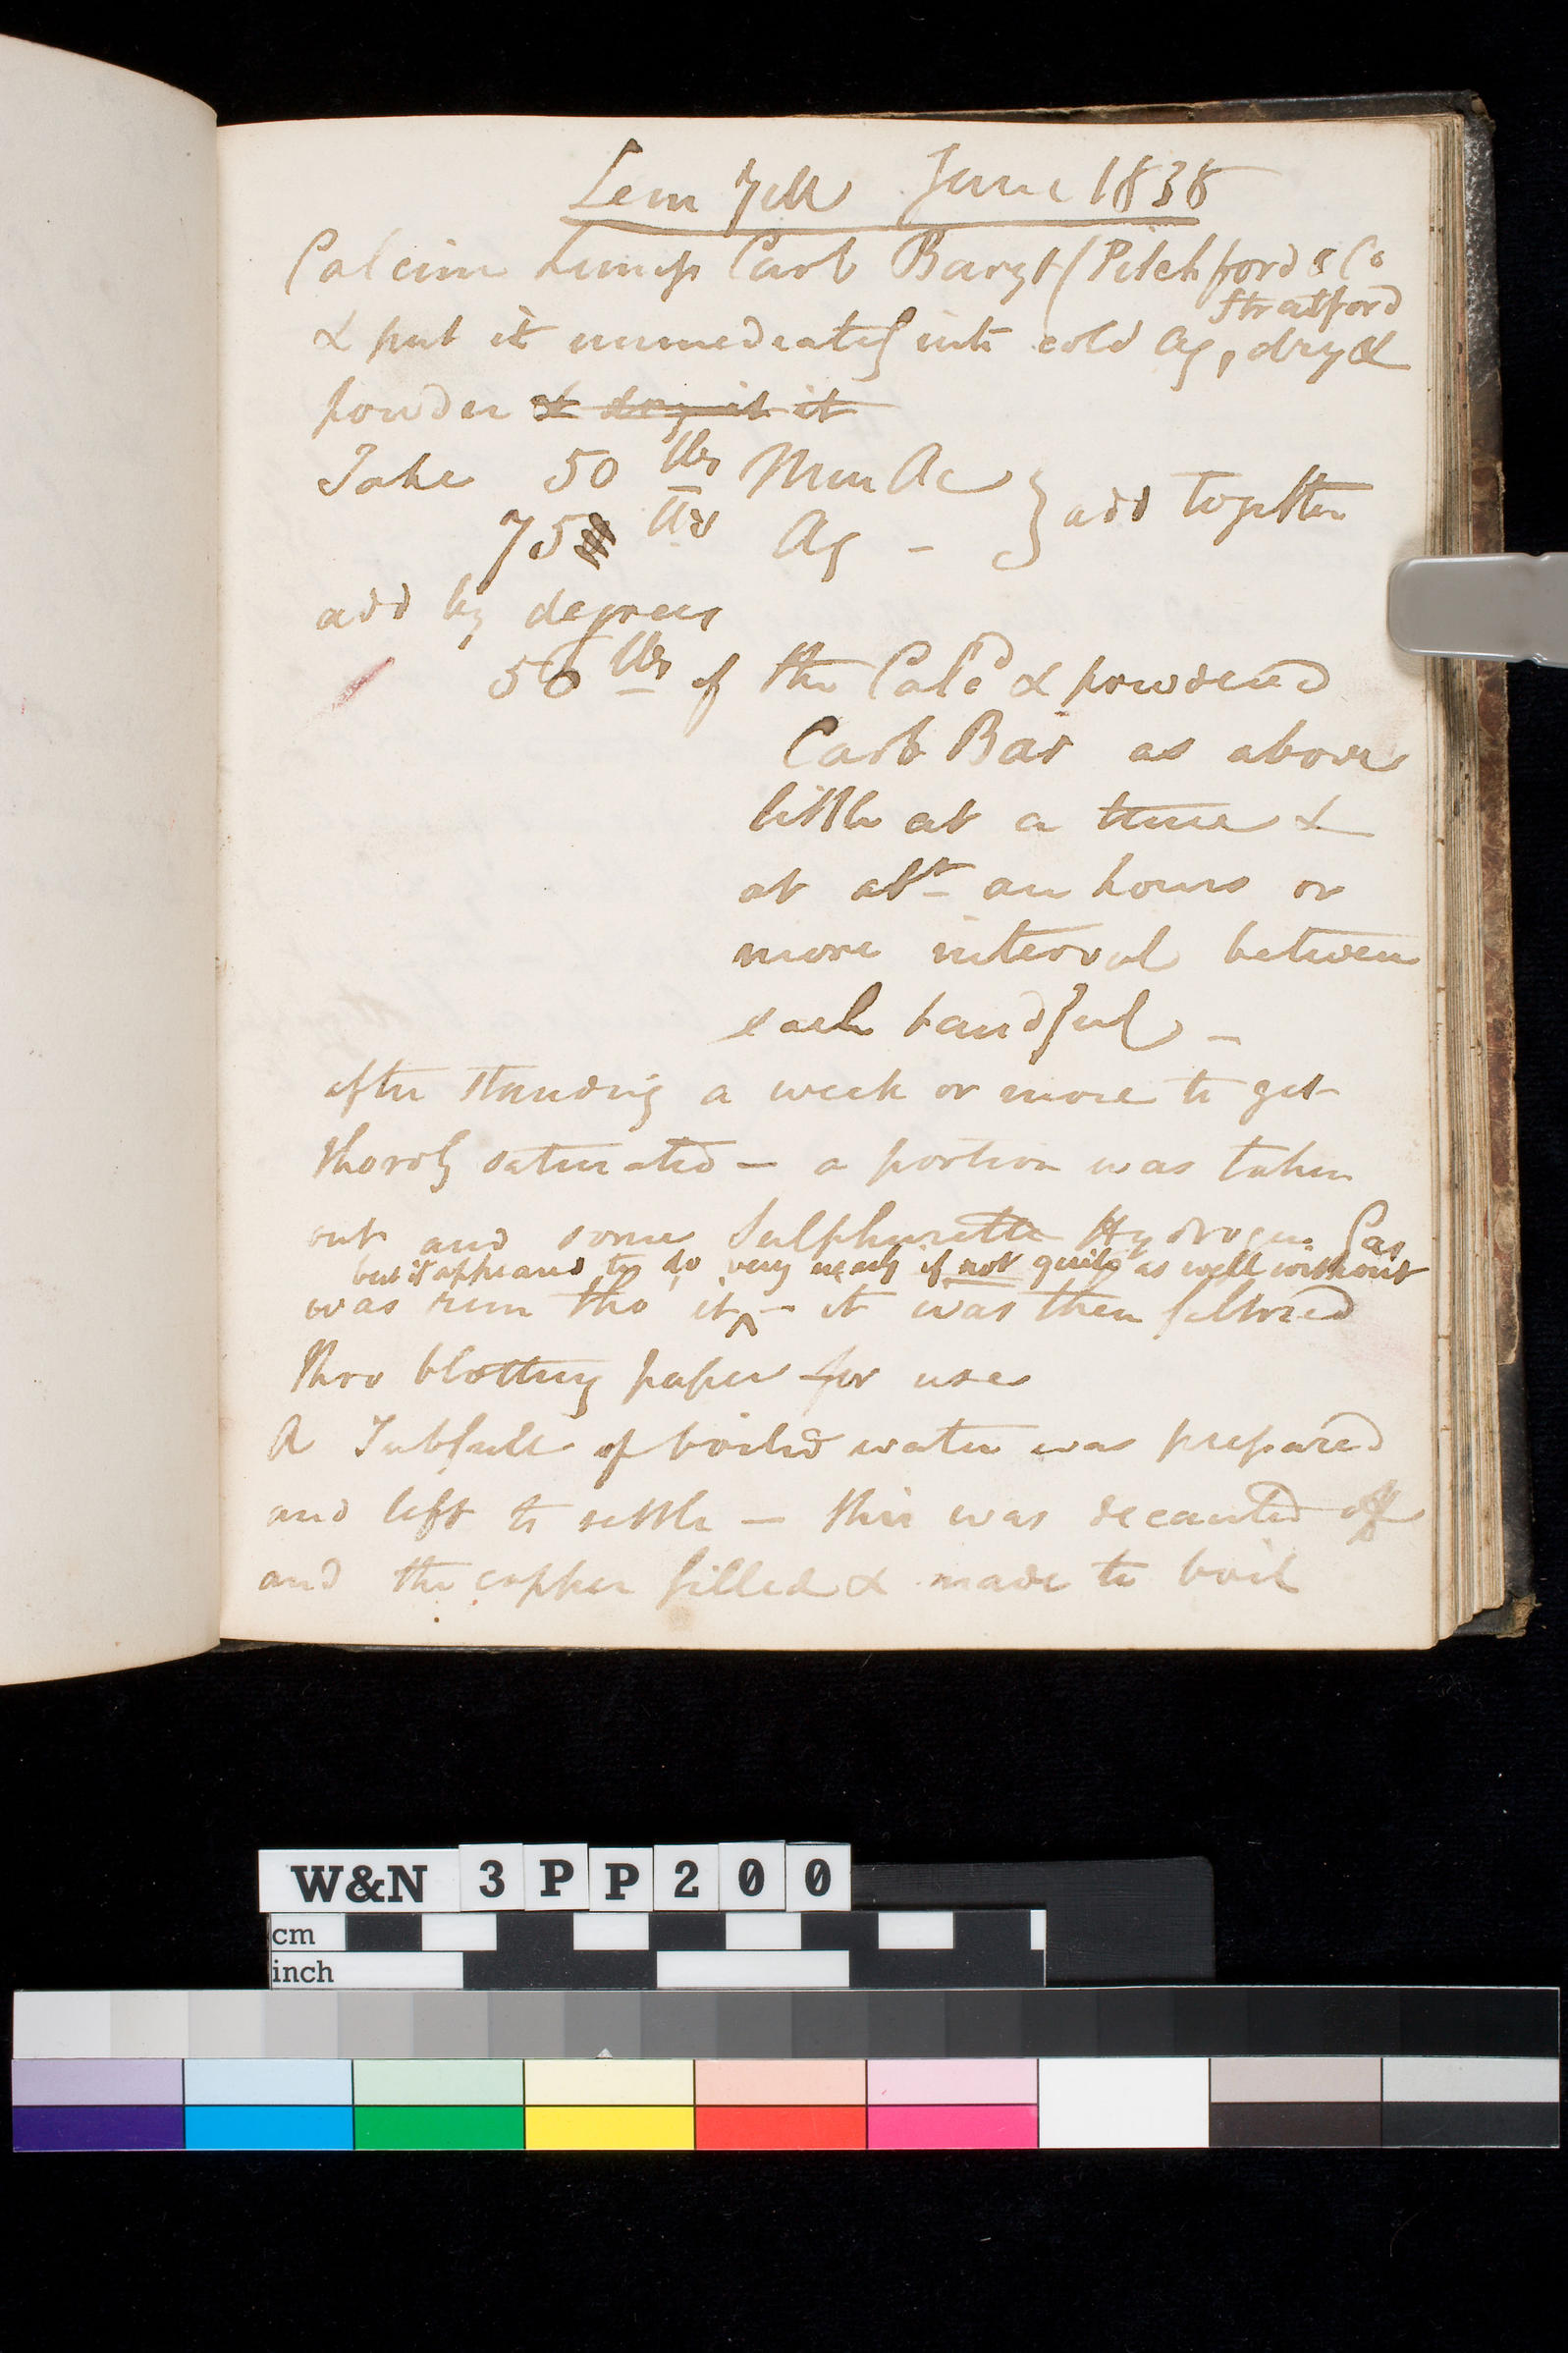 Lem Yell June 1838
Calcine Lump Carb Baryt (Pitchford & Co
Stratford
& put it immediately into cold Aq, dry &
powder & dry it it
Take 50 lbs Mur Ac } add together
75 lbs Aq -
add by degrees
56 lbs of the Calcd & powdered
Carb Bar as above
little at a time &
at abt an hours or
more interval between
each handful -
after standing a week or more to get
thoroly saturated - a portion was taken
out and some Sulphurette Hydrogen Gas
but it appears to do very nearly if not quite as well without
was run thro it ^ - it was then filtered
thro blotting paper for use
A Tubfull of boiled water was prepared
and left to settle - this was decanted off
and the copper filled & made to boil
W&N 3PP200
cm
inch